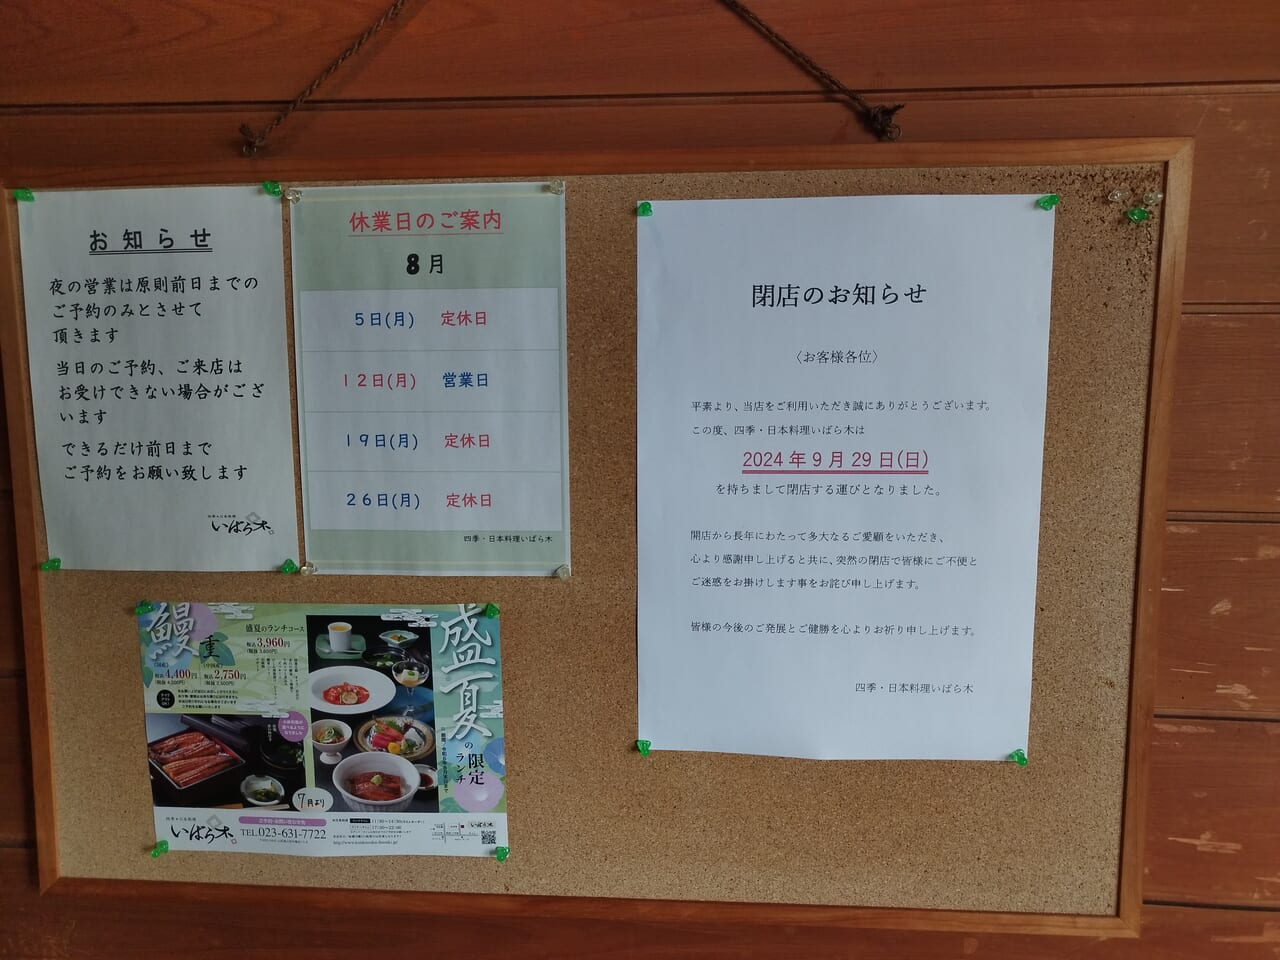 お知らせ
夜の営業は原則前日までの
ご予約のみとさせて
頂きます
当日のご予約、ご来店は
お受けできない場合がござ
います
できるだけ前日まで
ご予約をお願い致します
四季・日本料理
いばら木
休業日のご案内
8月
5日(月) 定休日
12日(月) 営業日
19日(月) 定休日
26日(月) 定休日
四季・日本料理いばら木
閉店のお知らせ
〈お客様各位〉
平素より、当店をご利用いただき誠にありがとうございます。
この度、四季・日本料理いばら木は
2024年9月29日(日)
を持ちまして閉店する運びとなりました。
開店から長年にわたって多大なるご愛顧をいただき、
心より感謝申し上げると共に、突然の閉店で皆様にご不便と
ご迷惑をお掛けします事をお詫び申し上げます。
皆様の今後のご発展とご健勝を心よりお祈り申し上げます。
四季・日本料理いばら木
鰻重
盛夏のランチコース
税込3,960円
(税抜 3,600円)
税込4,400円
税込2,750円
盛夏の
限定
ランチ
7月より
四季・日本料理
いばら木
ご予約・お問い合わせ先
TEL.023-631-7722
11:30〜14:30
17:30〜22:00
いばら木